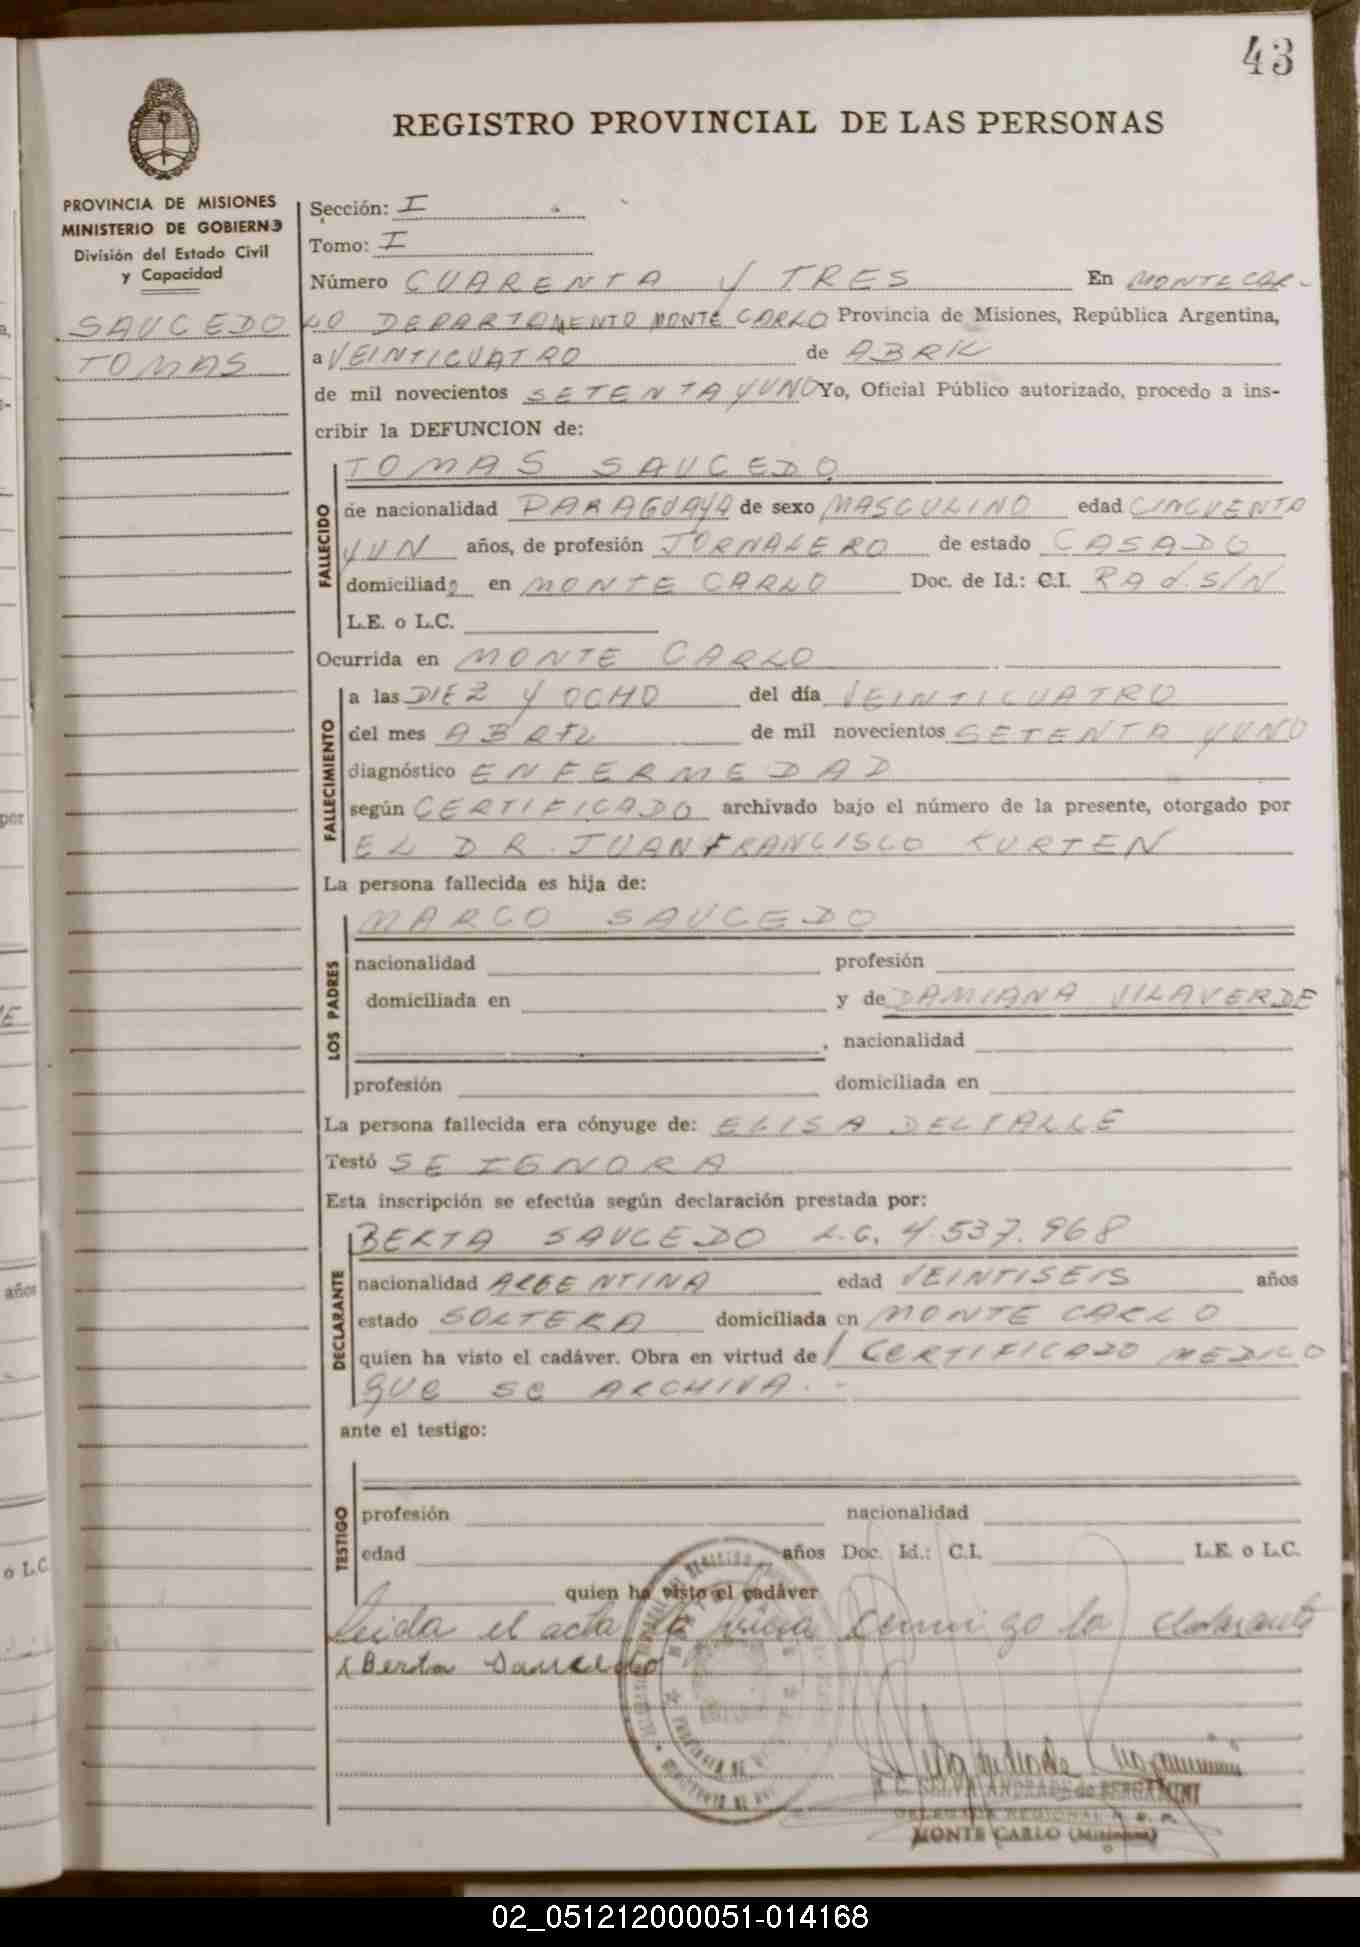 43
REGISTRO PROVINCIAL DE LAS PERSONAS
PROVINCIA DE MISIONES
MINISTERIO DE GOBIERNO
División del Estado Civil
y Capacidad
SAUCEDO
TOMAS
Sección: I
Tomo: I
Número CUARENTA Y TRES En MONTE CAR-
LO DEPARTAMENTO MONTE CARLO Provincia de Misiones, República Argentina,
a VEINTICUATRO de ABRIL
de mil novecientos SETENTA Y UNO Yo, Oficial Público autorizado, procedo a ins-
cribir la DEFUNCION de:
TOMAS SAUCEDO
FALLECIDO
de nacionalidad PARAGUAYA de sexo MASCULINO edad CINCUENTA
Y UN años, de profesión JORNALERO de estado CASADO
domiciliado en MONTE CARLO Doc. de Id.: C.I. S/N
L.E. o L.C.
Ocurrida en MONTE CARLO
FALLECIMIENTO
a las DIEZ Y OCHO del día VEINTICUATRO
del mes ABRIL de mil novecientos SETENTA Y UNO
diagnóstico ENFERMEDAD
según CERTIFICADO archivado bajo el número de la presente, otorgado por
EL DR. JUAN FRANCISCO KURTEN
La persona fallecida es hija de:
MARCO SAUCEDO
LOS PADRES
nacionalidad profesión
domiciliada en y de DAMIANA VILAVERDE
, nacionalidad
profesión domiciliada en
La persona fallecida era cónyuge de: ELISA DELVALLE
Testó SE IGNORA
Esta inscripción se efectúa según declaración prestada por:
BERTA SAUCEDO L.C. 4.537.968
DECLARANTE
nacionalidad ARGENTINA edad VEINTISEIS años
estado SOLTERA domiciliada en MONTE CARLO
quien ha visto el cadáver. Obra en virtud de CERTIFICADO MEDICO
QUE SE ARCHIVA.-
ante el testigo:
TESTIGO
profesión nacionalidad
edad años Doc. Id.: C.I. L.E. o L.C.
quien ha visto el cadáver
Leida el acta la firma conmigo la declarante
Berta Saucedo
SELVA ANDRADE de BERGAMINI
DELEGADA REGIONAL
MONTE CARLO (Misiones)
02_051212000051-014168